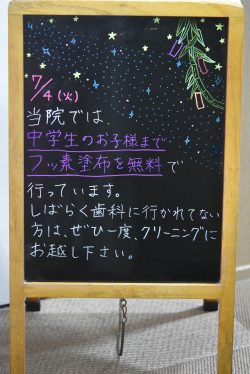 7/4(火)
当院では
中学生のお子様まで
フッ素塗布を無料で
行っています。
しばらく歯科に行かれてない
方は、ぜひ一度、クリーニングに
お越し下さい。